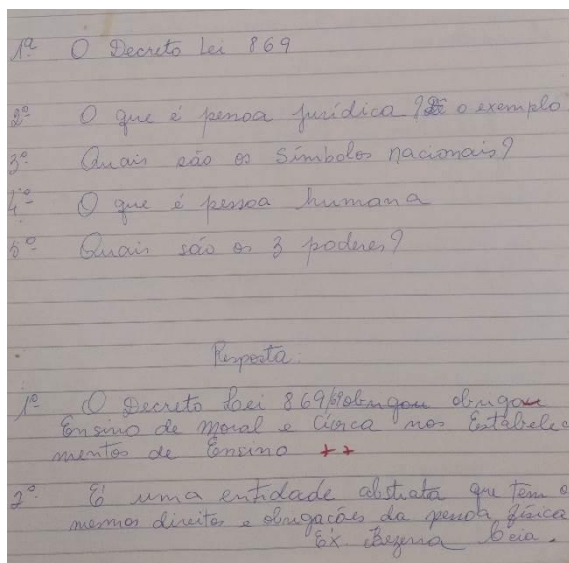 1ª O Decreto Lei 869
2º O que é pessoa jurídica? Dê o exemplo
3º Quais são os Símbolos nacionais?
4º O que é pessoa humana
5º Quais são os 3 poderes?
Resposta:
1º O Decreto Lei 869/69 obrigou
Ensino de Moral e Cívica nos Estabele
mentos de Ensino ++
2º É uma entidade abstrata que tem o
mesmos direitos e obrigações da pessoa física
Ex. Bezerra